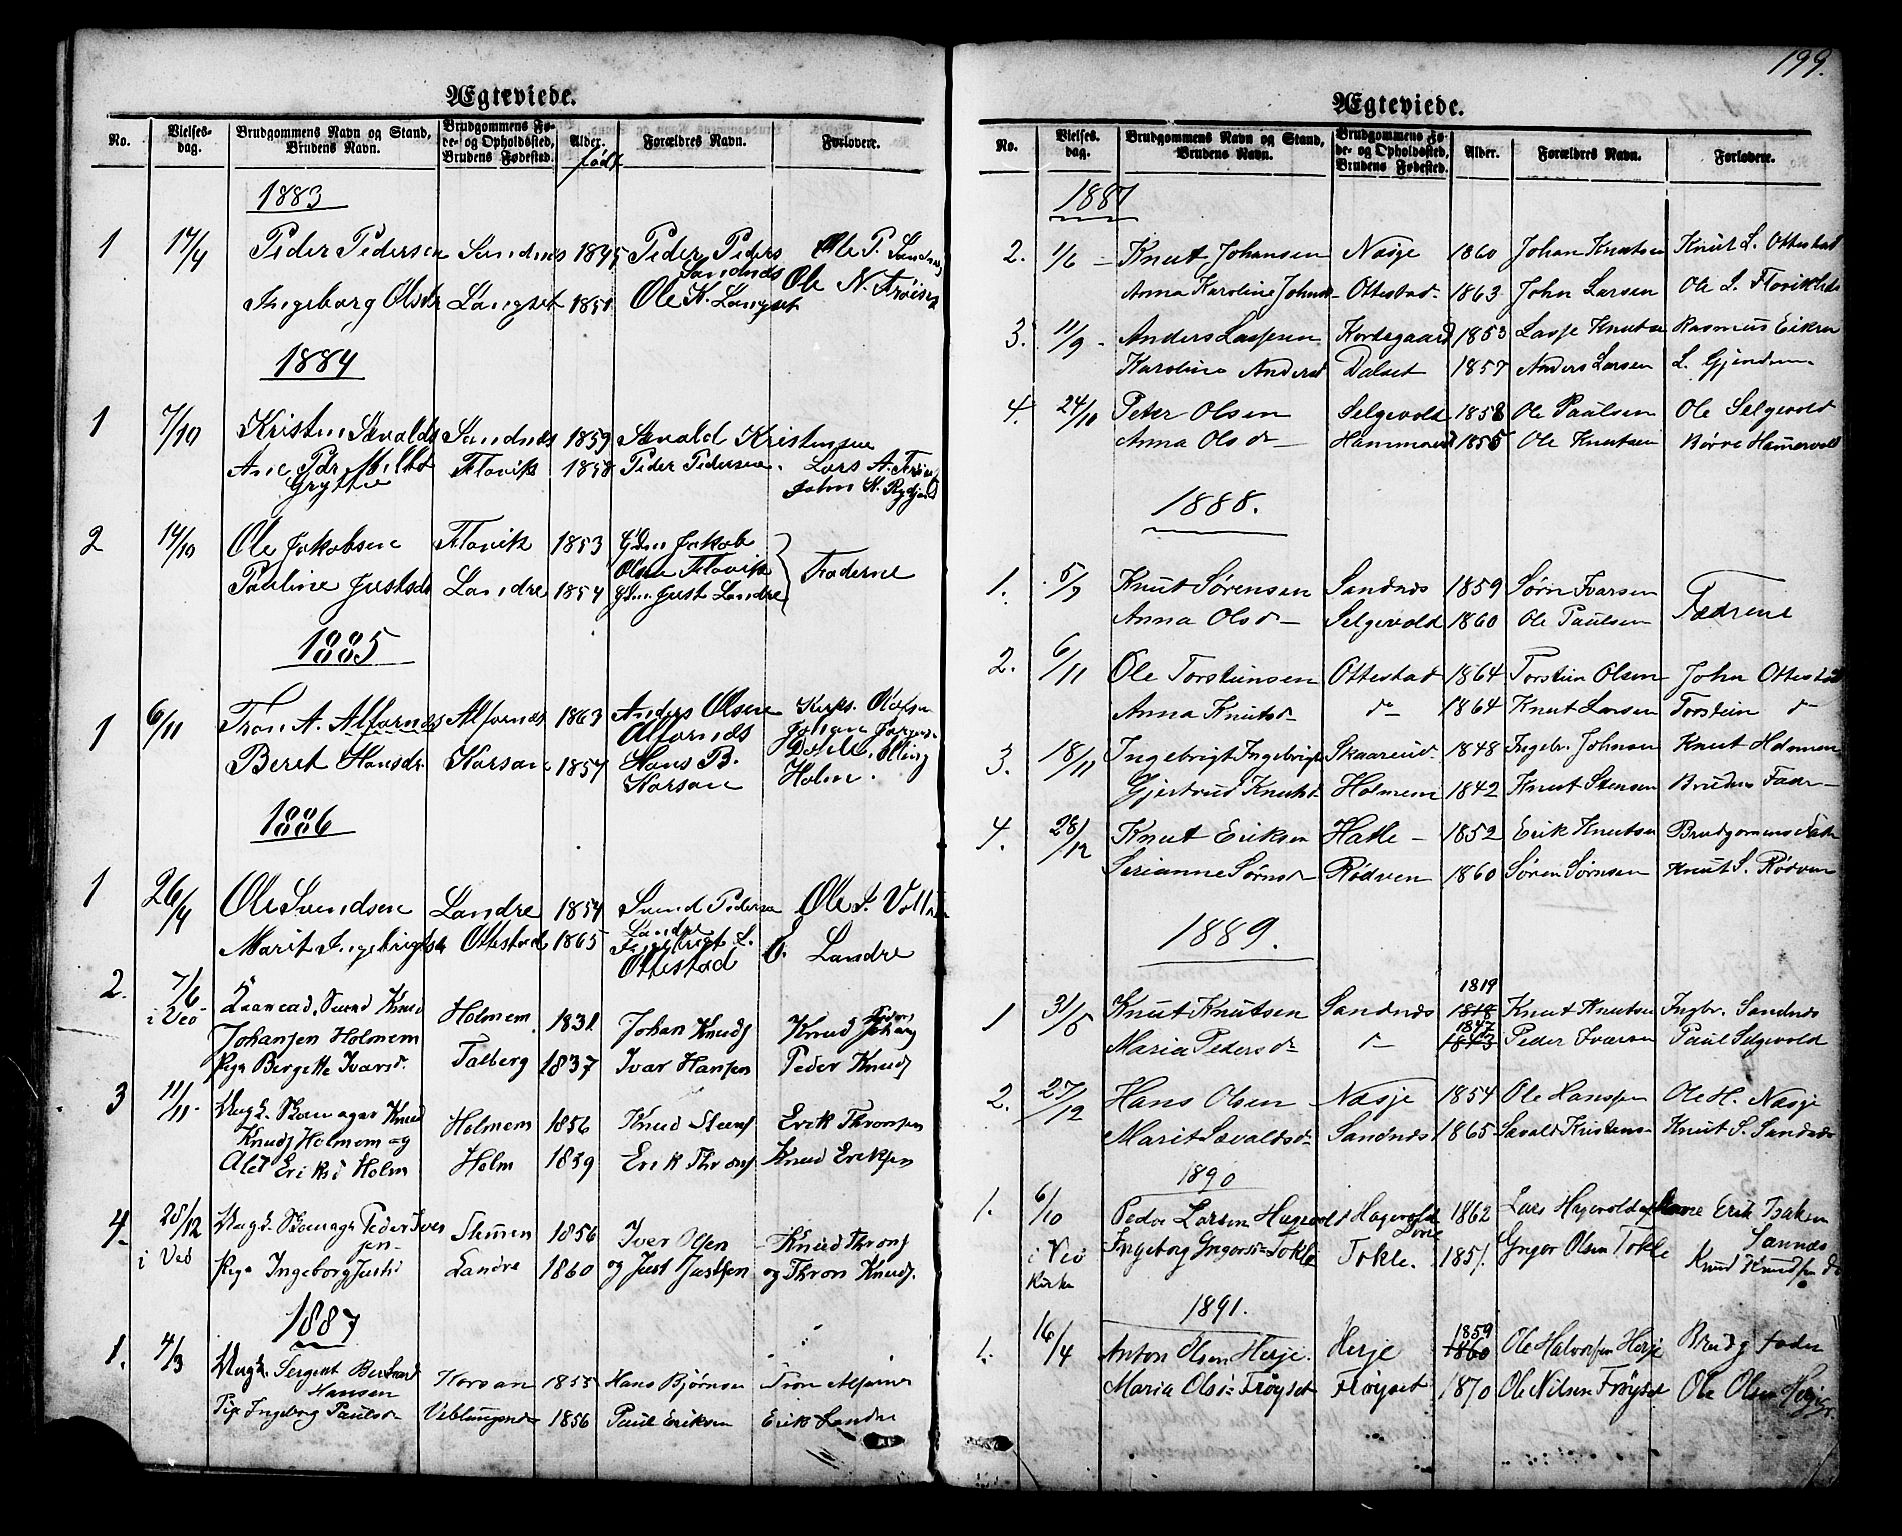 Ægteviede.
No. Vielsesdag. Brudgommens Navn og Stand, Brudens Navn. Brudgommens Føde- og Opholdssted, Brudens Fødested. Alder. født Forældres Navn. Forlovere.
1883
1 17/4 Peder Pedersen Sandnæs 1845 Peder Peders Sandnæs Ole P. Sandnæs
Ingeborg Olsdr Langset 1851 Ole K. Langset Ole N. Frøiset
1884
1 7/10 Kristen Sævalds Sandnæs 1859 Sævald Kristensen
Ane Pdr Flovik 1858 Peder Pedersen. Lars A.
Grytte John
2 14/10 Ole Jakobsen Flovik 1853 Gdm Jakob
Olsen Flovik Fæderne
Pauline Justsdr Landre 1854 Gdm. Just Landre
1885
1 6/11 Tron A. Alfarnæs Alfarnæs 1863 Anders Olsen
Alfarnæs
Beret Hansdr. Horsan 1857 Hans B. Holm.
Horsan
1886
1 26/4 Ole Svendsen Landre 1854 Svend Pedersen Ole S. Voll
Landre
Marit Ingebrigtsd Ottestad 1865 Ingebrigt L. E. Landre
Ottestad
2. 7/6 i Veø Knud
Johansen Holmem Holmem 1831 Johan Knuds Knud Johans
Pige Bergette Ivarsd. Talberg 1837 Ivar Hansen Peder Knuds
3 11/11 Ungk. Skomager Knud
Knuds Holmem og Holmem 1856 Knud Steens Erik Thronsen
Eriksd Holm Holm 1859 Erik Throns Knud Eriksen
4 28/12 Ungk. Skomager Peder Iversen 1856 Iver Olsen Knud Throns
i Veø Pige Ingeborg Justsd Landre 1860 og Just Justsen og Thron Knuds.
1887
1. 4/3 Ungk. Sergent Bernhard
Hansen Horsan 1855 Hans Bjørnsen Tron Alfarnes
Pige Ingeborg Paulsdr Veblungsnes 1856 Paul Eriksen Erik Landre
199.
Ægteviede.
No. Vielsesdag. Brudgommens Navn og Stand, Brudens Navn. Brudgommens Føde- og Opholdssted, Brudens Fødested. Alder. Forældres Navn. Forlovere.
1887
2. 1/6 - Knut Johansen Næsje 1860 Johan Knutsen Knut L. Ottestad
Anna Karoline Johnsd- Ottestad- 1863 John Larsen Ole L. Flovikhols
3. 11/9 - Anders Lassesen Kordsgaard 1853 Lasse Knutsen Rasmus Eiken
Karoline Andersd Dalset 1857 Anders Larsen L. Gjendem
4. 24/10 Peter Olsen Selgevold 1858 Ole Paulsen Ole Selgevold
Anna Olsd- Hammervold 1855 Ole Knutsen Børre Hamervold
1888.
1. 5/7 Knut Sørensen Sandnæs 1859 Sørn Ivarsen
Anna Olsd- Selgevold 1860 Ole Paulsen Fædrene
2. 6/11 Ole Torsteinsen Ottestad 1864 Torstein Olsen John Ottestad
Anna Knutsd- do 1864 Knut Larsen Torstein do
3. 18/11 Ingebrigt Ingebrigts Skaareid- 1848 Ingebr. Johnsen Knut Holmem
Gjertrud Knutsd- Holmem 1842 Knut Stensen Brudens Fader-
4. 28/12 Knut Eriksen Hatle - 1852 Erik Knutsen Brudgomens Fader
Serianne Sørnsd Rødven 1860 Søren Sørnsen Knut S. Rødven
1889.
1819
1 31/5 Knut Knutsen Sandnæs 1818 Knut Knutsen Ingbr. Sandnes
1847
Maria Pedersd- do 1843 Peder Ivarsen Paul Selgevold
2. 27/12 Hans Olsen Næsje 1854 Ole Hanssen Ole H. Næsje
Marit Sævaldsd- Sandnæs 1865 Sævald Kristens- Knut S. Sandnæs
1890
1. 6/10 Peder Larsen Hagevold Hagevold 1862 Lars Hagevold Erik Isaksen
i Veø Kirke Ingeborg Tokle Tokle. 1851. Olsen Tokle Sannes
Knud Knudsen do
1891.
1. 16/4 Anton Olsen Herje. Herje 1859
1860 Ole Halvorsen Herje Brudg Fader
Maria Olsd- Frøyset Frøyset 1870 Ole Nilsen Frøyset Ole Olsen Herje